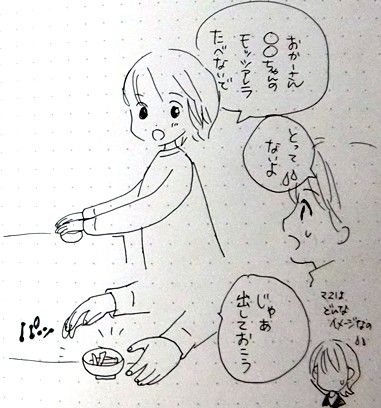 おかーさん
〇〇ちゃんの
モッツアレラ
たべないで
とって
ないよ
じゃあ
出しておこう
パッ
ママは
どんな
イメージなの